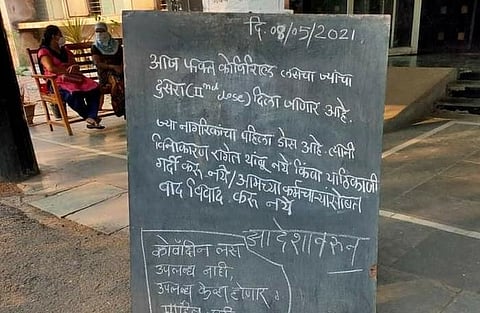 दि. 08/05/2021.
आज फक्त कोविशिल्ड लसचा ज्यांचा
दुसरा (IInd dose) दिला जाणार आहे.
ज्या नागरिकांचा पहिला डोस आहे. त्यांनी
विनाकारण रांगेत थांबू नये किंवा याठिकाणी
गर्दी करू नये/ आमच्या कर्मचाऱ्यांसोबत
वाद विवाद करू नये
आदेशावरून
कोवॅक्सिन लस
उपलब्ध नाही,
उपलब्ध केव्हा होणार